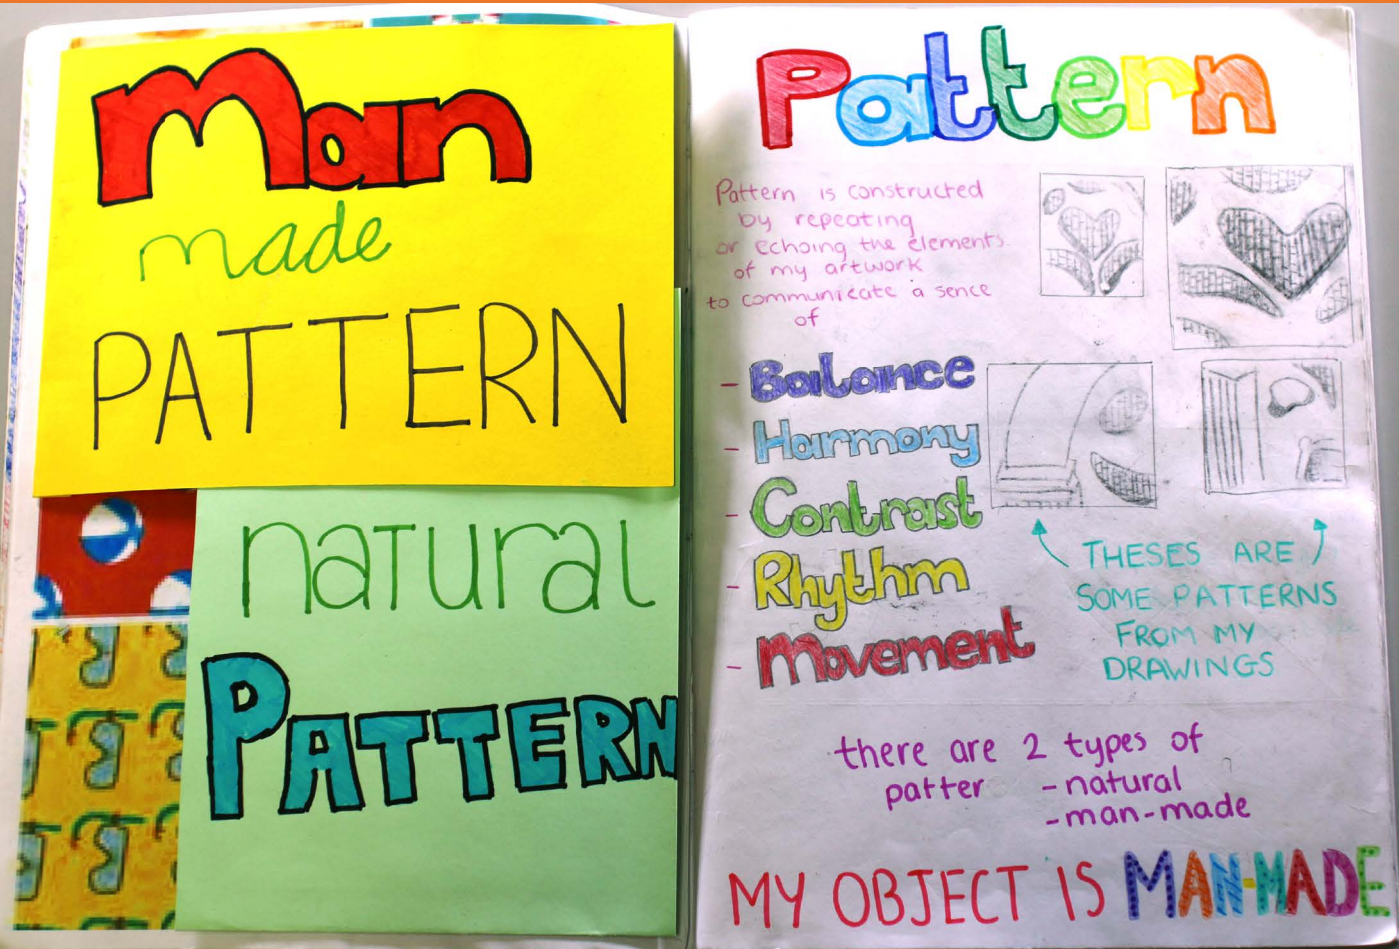 Man
made
PATTERN
natural
PATTERN
Pattern
Pattern is constructed
by repeating
or echoing the elements
of my artwork
to communicate a sence
of
- Balance
- Harmony
- Contrast
- Rhythm
- Movement
THESES ARE
SOME PATTERNS
FROM MY
DRAWINGS
there are 2 types of
patter - natural
- man-made
MY OBJECT IS MAN-MADE